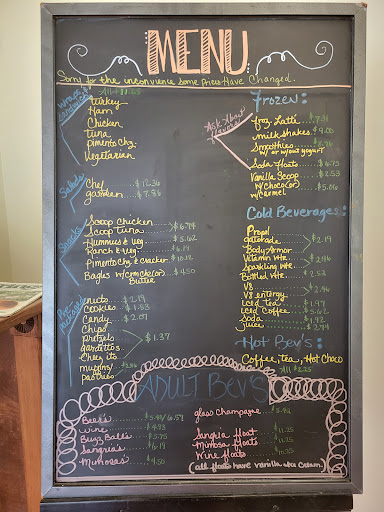 MENU
Sorry for the inconvience some Prices Have Changed.
Wraps &
Sandwiches
All $11.29
turkey
Ham
Chicken
tuna
pimento Chz.
Vegetarian
Salads
Chef $12.36
garden $7.96
Snacks
Scoop Chicken
Scoop tuna > $6.74
Hummus & veg $5.62
Ranch & veg $6.19
Pimento chz & cracker $10.12
Bagles w/crmchz (or) $4.50
Butter
Pre
packaged
nuts $2.19
Cookies $1.53
Candy $2.07
Chips
Pretzels
gardettos > $1.37
Cheez its
muffins/
pastries
Ask About
Flavors
Frozen:
froz Latte
milk shakes $9.00
Smoothies
w/ or w/out yogurt
Soda Floats $6.75
Vanilla Scoop $2.53
w/choco(or) $5.06
w/Carmel
Cold Beverages:
Propel
gatorade > $2.19
Body Armor
Vitamin wtr
Sparkling wtr
Bottled wtr $2.53
V8
V8 energy
iced tea $1.97
iced Coffee $5.62
Soda $1.92
juice $2.74
Hot Bev's:
Coffee, tea, Hot Choco
All $2.25
ADULT Bev's
Beers $5.44/6.57
wine $4.93
Buzz Ball's $5.75
Sangria's $6.19
Mimosas $4.50
glass champagne
Sangria float $11.25
Mimosa floats $11.25
Wine floats $11.25
(all floats have vanilla ice cream)